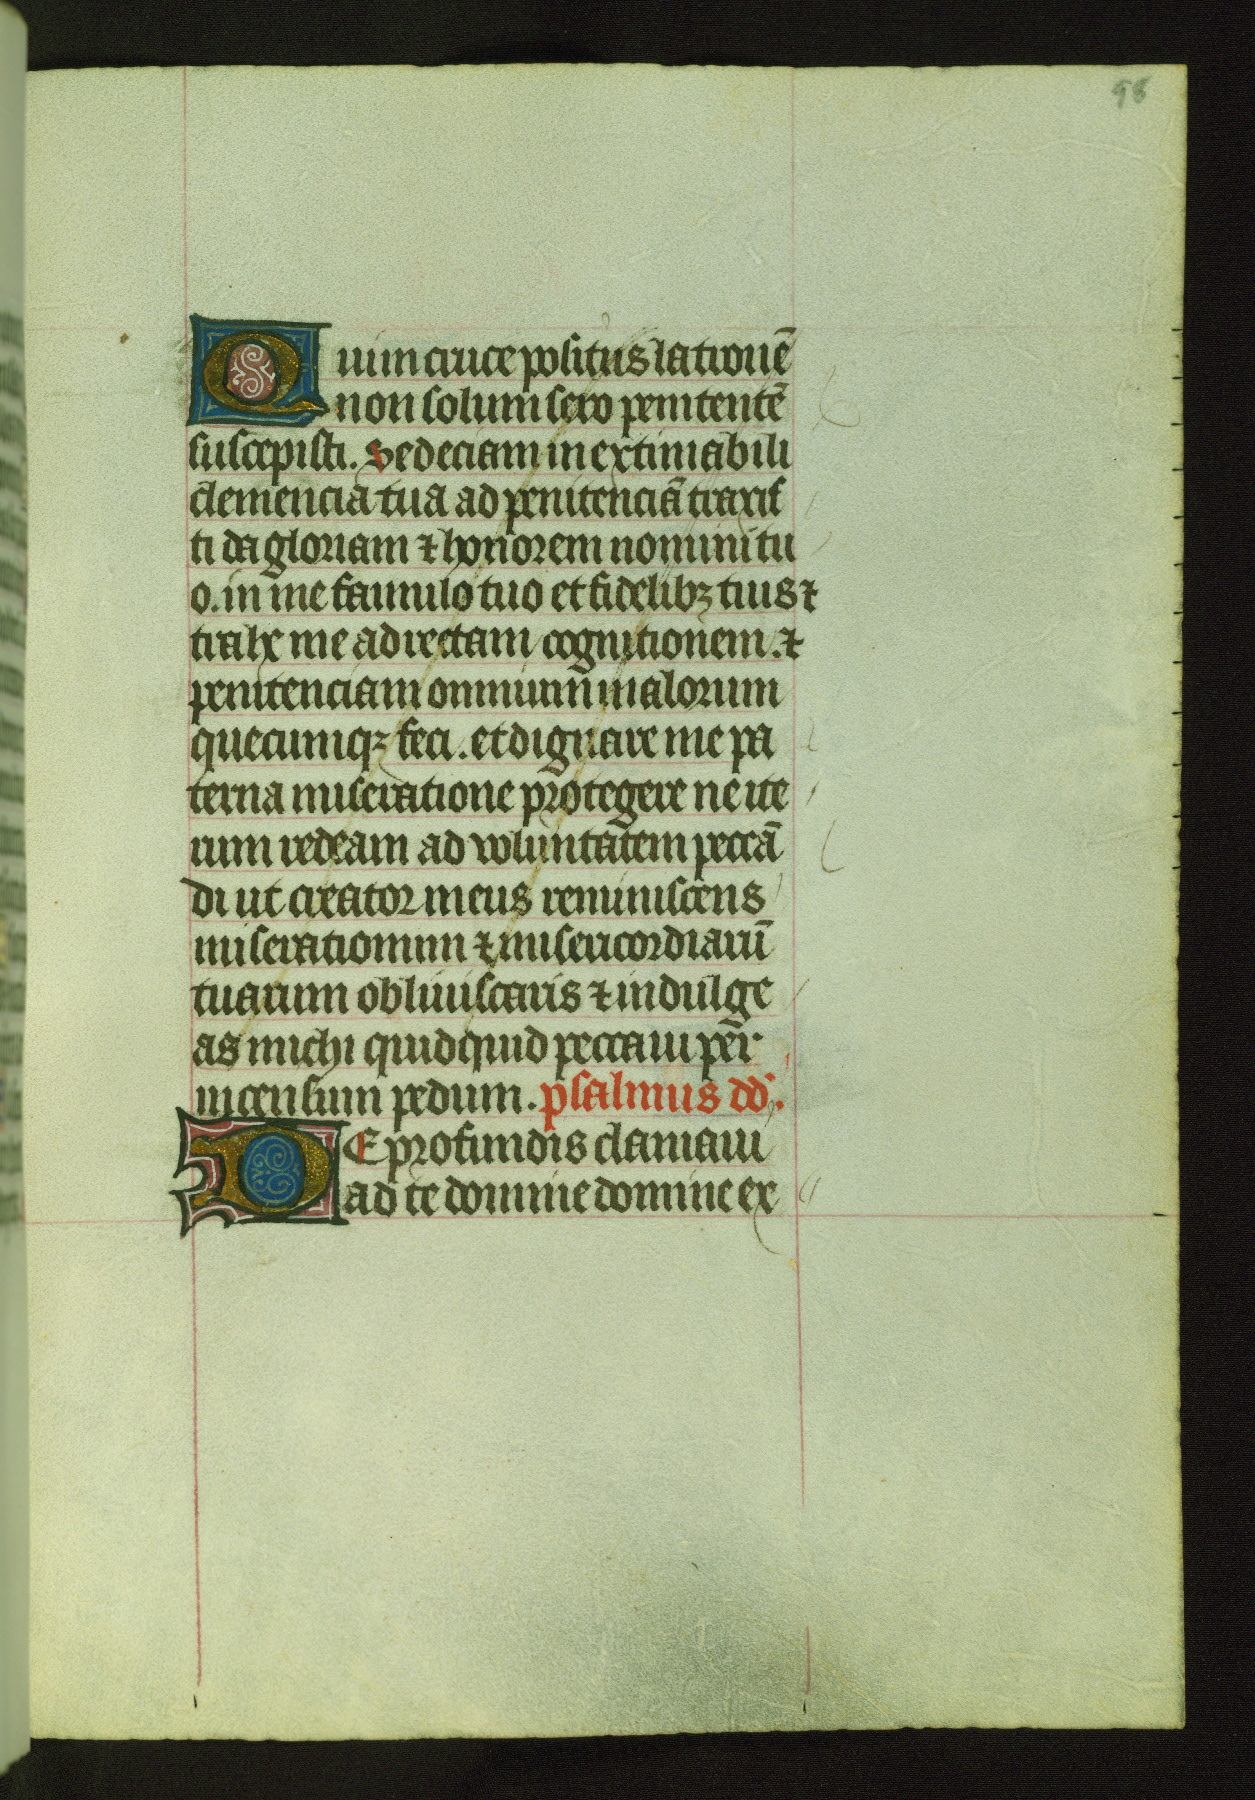 98
Qui in cruce positus latronē
non solum sero penitentē
suscepisti. Sed eciam inextimabili
clemencia tua ad penitenciā traxis
ti da gloriam ⁊ honorem nomini tu
o. in me famulo tuo et fidelibꝫ tuis ⁊
trahe me ad rectam cognitionem. ⁊
penitenciam omnium malorum
quecumqꝫ feci. et dignare me pa
terna miseratione protegere ne ite
rum redeam ad voluntatem peccā
di ut creator meus reminiscens
miserationum ⁊ misericordiarū
tuarum obliuiscaris ⁊ indulge
as michi quidquid peccaui per
incensum pedum. psalmus dd.
DE profundis clamaui
ad te domine domine ex